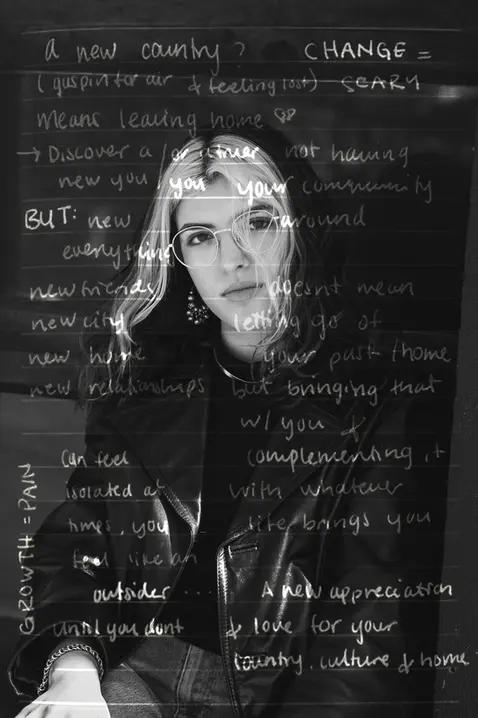 a new country?
CHANGE =
(gasping for air & feeling lost)
SCARY
Means leaving home
→ Discover a / or other
not having
new you / you
your community
BUT: new
around
everything
new friends
doesnt mean
new city
letting go of
new home
your past / home
new relationships
but bringing that
w/ you &
Can feel
complementing it
isolated at
with whatever
times, you
life brings you
feel like an
outsider ....
A new appreciation
until you dont
& love for your
country, culture & home
GROWTH = PAIN